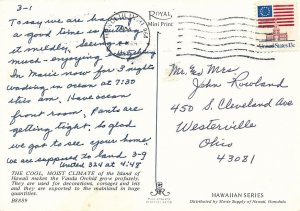 3-1
To say we are having
a good time is putting
it mildly. Seeing
much - enjoying everything
In Maui now for 3 nights
wading in ocean at 7:30
this am. Have ocean
front room. Pants are
getting tight, so glad
we got to see your home
we are supposed to land 3-9
United 324 at 4:49
THE COOL, MOIST CLIMATE of the Island of
Hawaii makes the Vanda Orchid grow profusely.
They are used for decorations, corsages and leis
and they are exported to the mainland in huge
quantities.
B8889
ROYAL
Mini Print
United States 13c
Mr. and Mrs.
John Rowland
450 S. Cleveland Ave
Westerville
Ohio
43081
HAWAIIAN SERIES
Distributed by Movie Supply of Hawaii, Honolulu